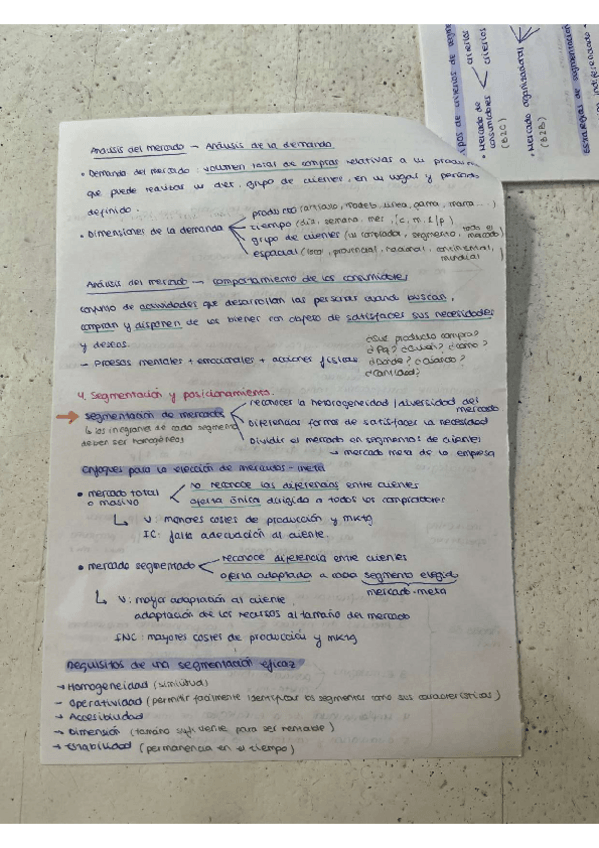 Análisis del mercado - Análisis de la demanda.
• Demanda del mercado: volumen total de compras relativas a un producto
que puede realizar un det. grupo de clientes, en un lugar y periodo
definido.
• Dimensiones de la demanda
producto (artículo, modelo, línea, gama, marca ...)
tiempo (día, semana, mes, c, m, l/p)
grupo de clientes (un comprador, segmento, todo el mercado)
espacial (local, provincial, nacional, continental, mundial)
Análisis del mercado - comportamiento de los consumidores
conjunto de actividades que desarrollan las personas cuando buscan,
compran y disponen de los bienes con objeto de satisfacer sus necesidades
y deseos.
- Procesos mentales + emocionales + acciones físicas
¿Qué producto compra?
¿Pq? ¿Quién? ¿cómo?
¿Dónde? ¿Cuándo?
¿Cantidad?
4. Segmentación y posicionamiento.
→ Segmentación de mercados
reconocer la heterogeneidad/diversidad del mercado
Diferencias forma de satisfacer la necesidad
Dividir el mercado en segmentos de clientes
→ mercado meta de la empresa
↳ los integrantes de cada segmento
deben ser homogéneos
Enfoques para la elección de mercados-meta
• mercado total
o masivo
no reconoce las diferencias entre clientes
oferta única dirigida a todos los compradores
↳ V: menores costes de producción y mktg
IC: falta adecuación al cliente.
• mercado segmentado
reconoce diferencia entre clientes
oferta adaptada a cada segmento elegido
mercado-meta
↳ V: mayor adaptación al cliente
adaptación de los recursos al tamaño del mercado
INC: mayores costes de producción y mktg
Requisitos de una segmentación eficaz
→ Homogeneidad (similitud)
→ Operatividad (permitir fácilmente identificar los segmentos como sus características)
→ Accesibilidad
→ Dimensión (tamaño suficiente para ser rentable)
→ Estabilidad (permanencia en el tiempo)
tipos de criterios de
• Mercado de
consumidores
(B2C)
criterios
criterios
• Mercado organizacional
(B2B)
Estrategias de segmentación